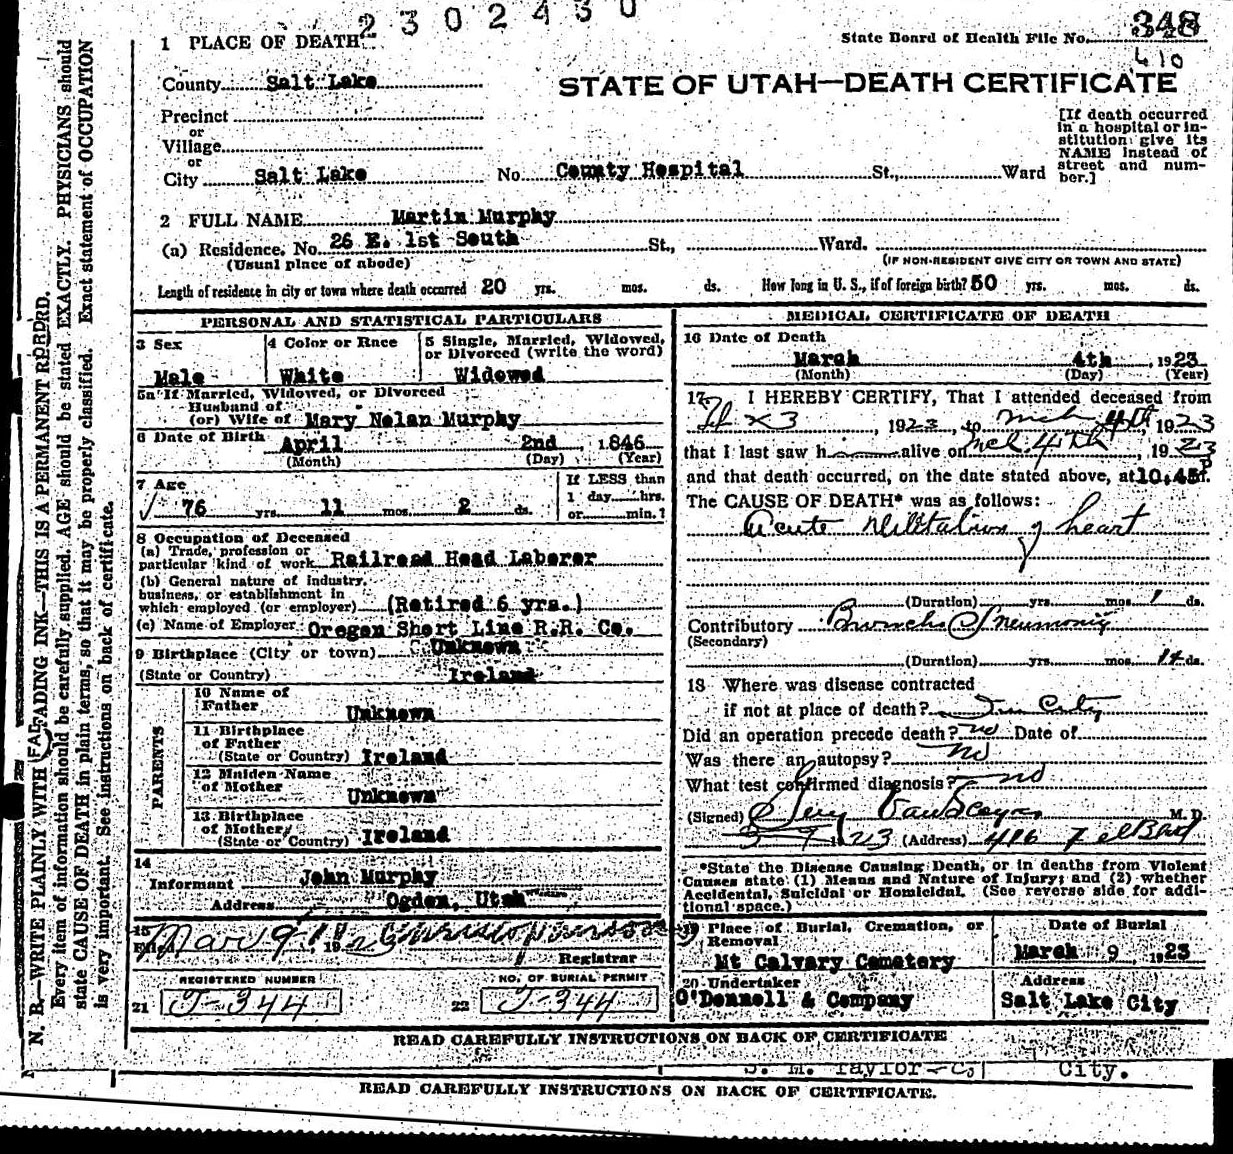 2302430
348
State Board of Health File No.
410
1 PLACE OF DEATH
STATE OF UTAH—DEATH CERTIFICATE
County Salt Lake
Precinct
or
Village
or
City Salt Lake No. County Hospital St., Ward
[If death occurred
in a hospital or in-
stitution give its
NAME instead of
street and num-
ber.]
2 FULL NAME Martin Murphy
(a) Residence. No. 26 E. 1st South St., Ward.
(Usual place of abode) (IF NON-RESIDENT GIVE CITY OR TOWN AND STATE)
Length of residence in city or town where death occurred 20 yrs. mos. ds. How long in U. S., if of foreign birth? 50 yrs. mos. ds.
PERSONAL AND STATISTICAL PARTICULARS
3 Sex
Male
4 Color or Race
White
5 Single, Married, Widowed,
or Divorced (write the word)
Widowed
5a If Married, Widowed, or Divorced
Husband of
(or) Wife of Mary Nolan Murphy
6 Date of Birth April 2nd, 1846
(Month) (Day) (Year)
7 Age
76 yrs. 11 mos. 2 ds.
If LESS than
1 day hrs.
or min.?
8 Occupation of Deceased
(a) Trade, profession or
particular kind of work Railroad Head Laborer
(b) General nature of industry,
business, or establishment in
which employed (or employer) (Retired 6 yrs.)
(c) Name of Employer Oregon Short Line R.R. Co.
9 Birthplace (City or town) Unknown
(State or Country) Ireland
PARENTS
10 Name of
Father
Unknown
11 Birthplace
of Father
(State or Country) Ireland
12 Maiden Name
of Mother
Unknown
13 Birthplace
of Mother
(State or Country) Ireland
14
Informant John Murphy
Address Ogden, Utah
15
Filed Mar 9 19
Registrar
REGISTERED NUMBER
21 J-344
NO. OF BURIAL PERMIT
22 J-344
MEDICAL CERTIFICATE OF DEATH
16 Date of Death
March 4th, 1923
(Month) (Day) (Year)
17 I HEREBY CERTIFY, That I attended deceased from
, 1923, to Mch 4th, 1923
that I last saw h alive on Mch. 4th, 1923
and that death occurred, on the date stated above, at 10.45 P m.
The CAUSE OF DEATH* was as follows:
Acute Dilitation of heart
(Duration) yrs. mos. 1 ds.
Contributory Broncho Pneumonia
(Secondary)
(Duration) yrs. mos. 14 ds.
18 Where was disease contracted
if not at place of death? In City
Did an operation precede death? no Date of
Was there an autopsy? no
What test confirmed diagnosis? no
(Signed) M. D.
1923 (Address) 416
*State the Disease Causing Death, or in deaths from Violent
Causes state (1) Means and Nature of Injury; and (2) whether
Accidental, Suicidal or Homicidal. (See reverse side for addi-
tional space.)
19 Place of Burial, Cremation, or
Removal
Mt Calvary Cemetery
Date of Burial
March 9, 1923
20 Undertaker
O'Donnell & Company
Address
Salt Lake City
READ CAREFULLY INSTRUCTIONS ON BACK OF CERTIFICATE
J. M. Taylor Co City.
READ CAREFULLY INSTRUCTIONS ON BACK OF CERTIFICATE.
N. B.—WRITE PLAINLY WITH FADING INK—THIS IS A PERMANENT RECORD.
Every item of information should be carefully supplied. AGE should be stated EXACTLY. PHYSICIANS should
state CAUSE OF DEATH in plain terms, so that it may be properly classified. Exact statement of OCCUPATION
is very important. See instructions on back of certificate.